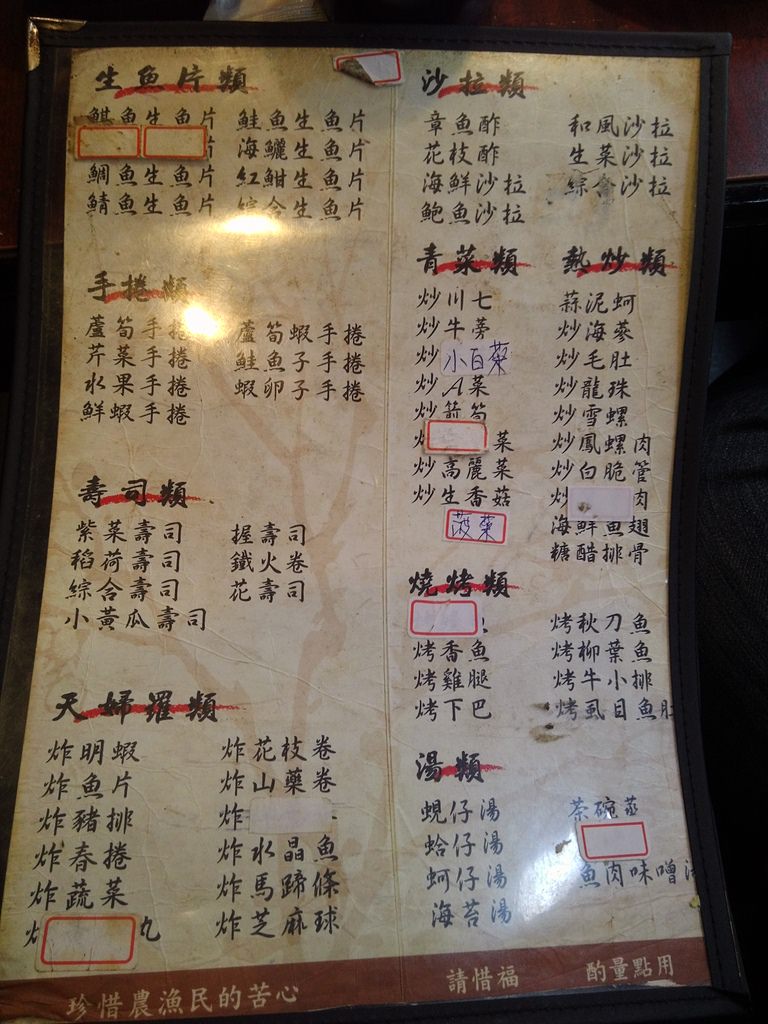 生魚片類
魚生魚片
鯛魚生魚片
鯖魚生魚片
鮭魚生魚片
海鱺生魚片
紅魽生魚片
綜合生魚片
手捲類
蘆筍手捲
芹菜手捲
水果手捲
鮮蝦手捲
蘆筍蝦手捲
鮭魚子手捲
蝦卵子手捲
壽司類
紫菜壽司
稻荷壽司
綜合壽司
小黃瓜壽司
握壽司
鐵火卷
花壽司
天婦羅類
炸明蝦
炸魚片
炸豬排
炸春捲
炸蔬菜
丸
炸花枝卷
炸山藥卷
炸
炸水晶魚
炸馬蹄條
炸芝麻球
沙拉類
章魚酢
花枝酢
海鮮沙拉
鮑魚沙拉
和風沙拉
生菜沙拉
綜合沙拉
青菜類
炒川七
炒牛蒡
炒小白菜
炒A菜
炒箭筍
菜
炒高麗菜
炒生香菇
菠菜
熱炒類
蒜泥蚵
炒海蔘
炒毛肚
炒龍珠
炒雪螺
炒鳳螺肉
炒白脆管
炒 肉
海鮮魚翅
糖醋排骨
燒烤類
烤香魚
烤雞腿
烤下巴
烤秋刀魚
烤柳葉魚
烤牛小排
烤虱目魚肚
湯類
蜆仔湯
蛤仔湯
蚵仔湯
海苔湯
茶碗蒸
魚肉味噌
珍惜農漁民的苦心
請惜福
酌量點用